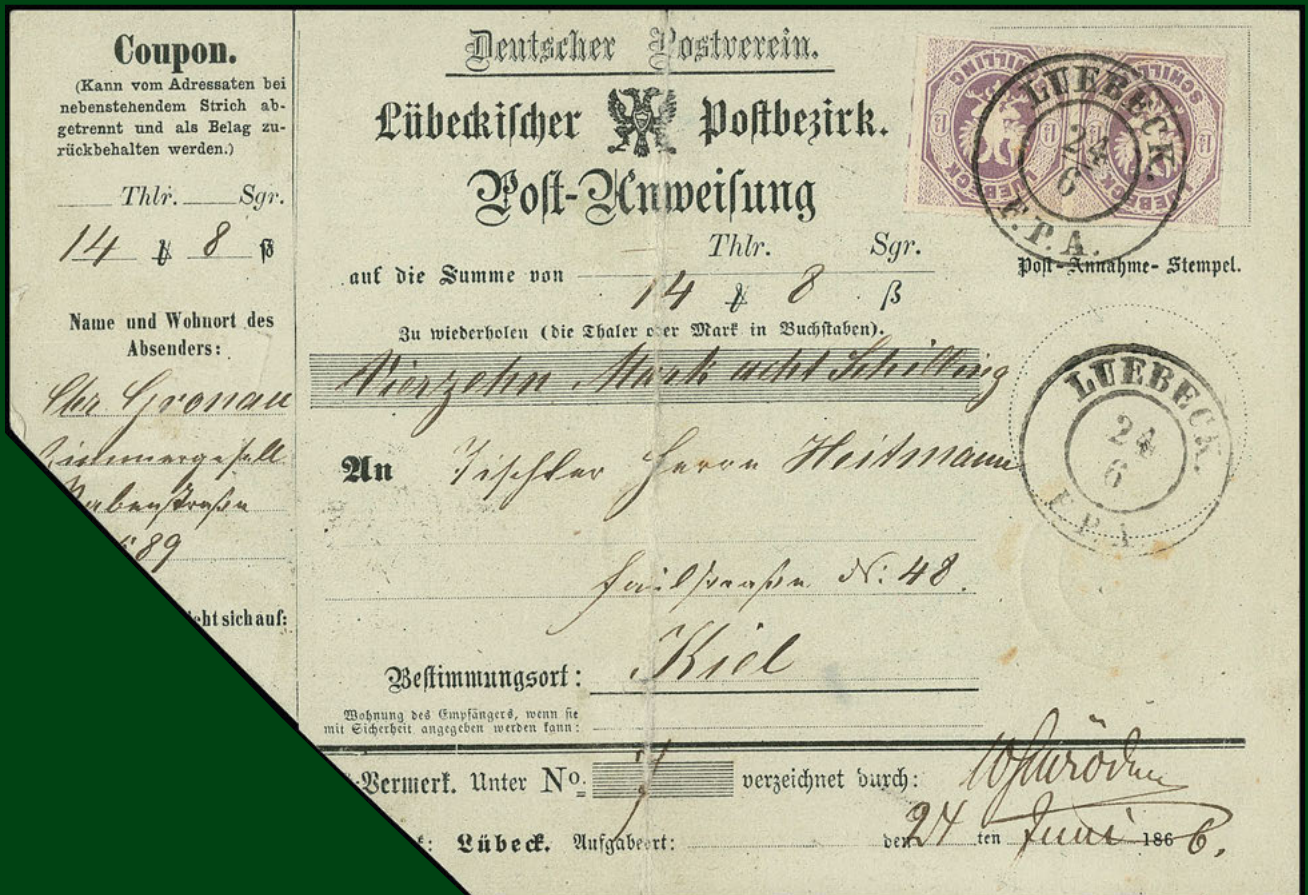 Coupon.
(Kann vom Adressaten bei
nebenstehendem Strich ab-
getrennt und als Belag zu-
rückbehalten werden.)
Thlr. Sgr.
14 8 ß
Name und Wohnort des
Absenders:
Chr Gronau
89
ht sich auf:
Deutscher Postverein.
Lübeckischer Postbezirk.
Post-Anweisung
Thlr. Sgr.
auf die Summe von
14 8 ß
Zu wiederholen (die Thaler oder Mark in Buchstaben).
Vierzehn Mark acht Schilling
An Tischler Herrn Heitmann
No: 48.
Bestimmungsort: Kiel
Wohnung des Empfängers, wenn sie
mit Sicherheit angegeben werden kann:
-Vermerk. Unter No. verzeichnet durch:
: Lübeck. Aufgabeort: den 24 ten Juni 1866.
SCHILLING
LUEBECK
SCHILL
LUEBECK
LUEBECK.
24
6
F. P. A.
Post-Annahme-Stempel.
LUEBECK.
24
6
F. P. A.